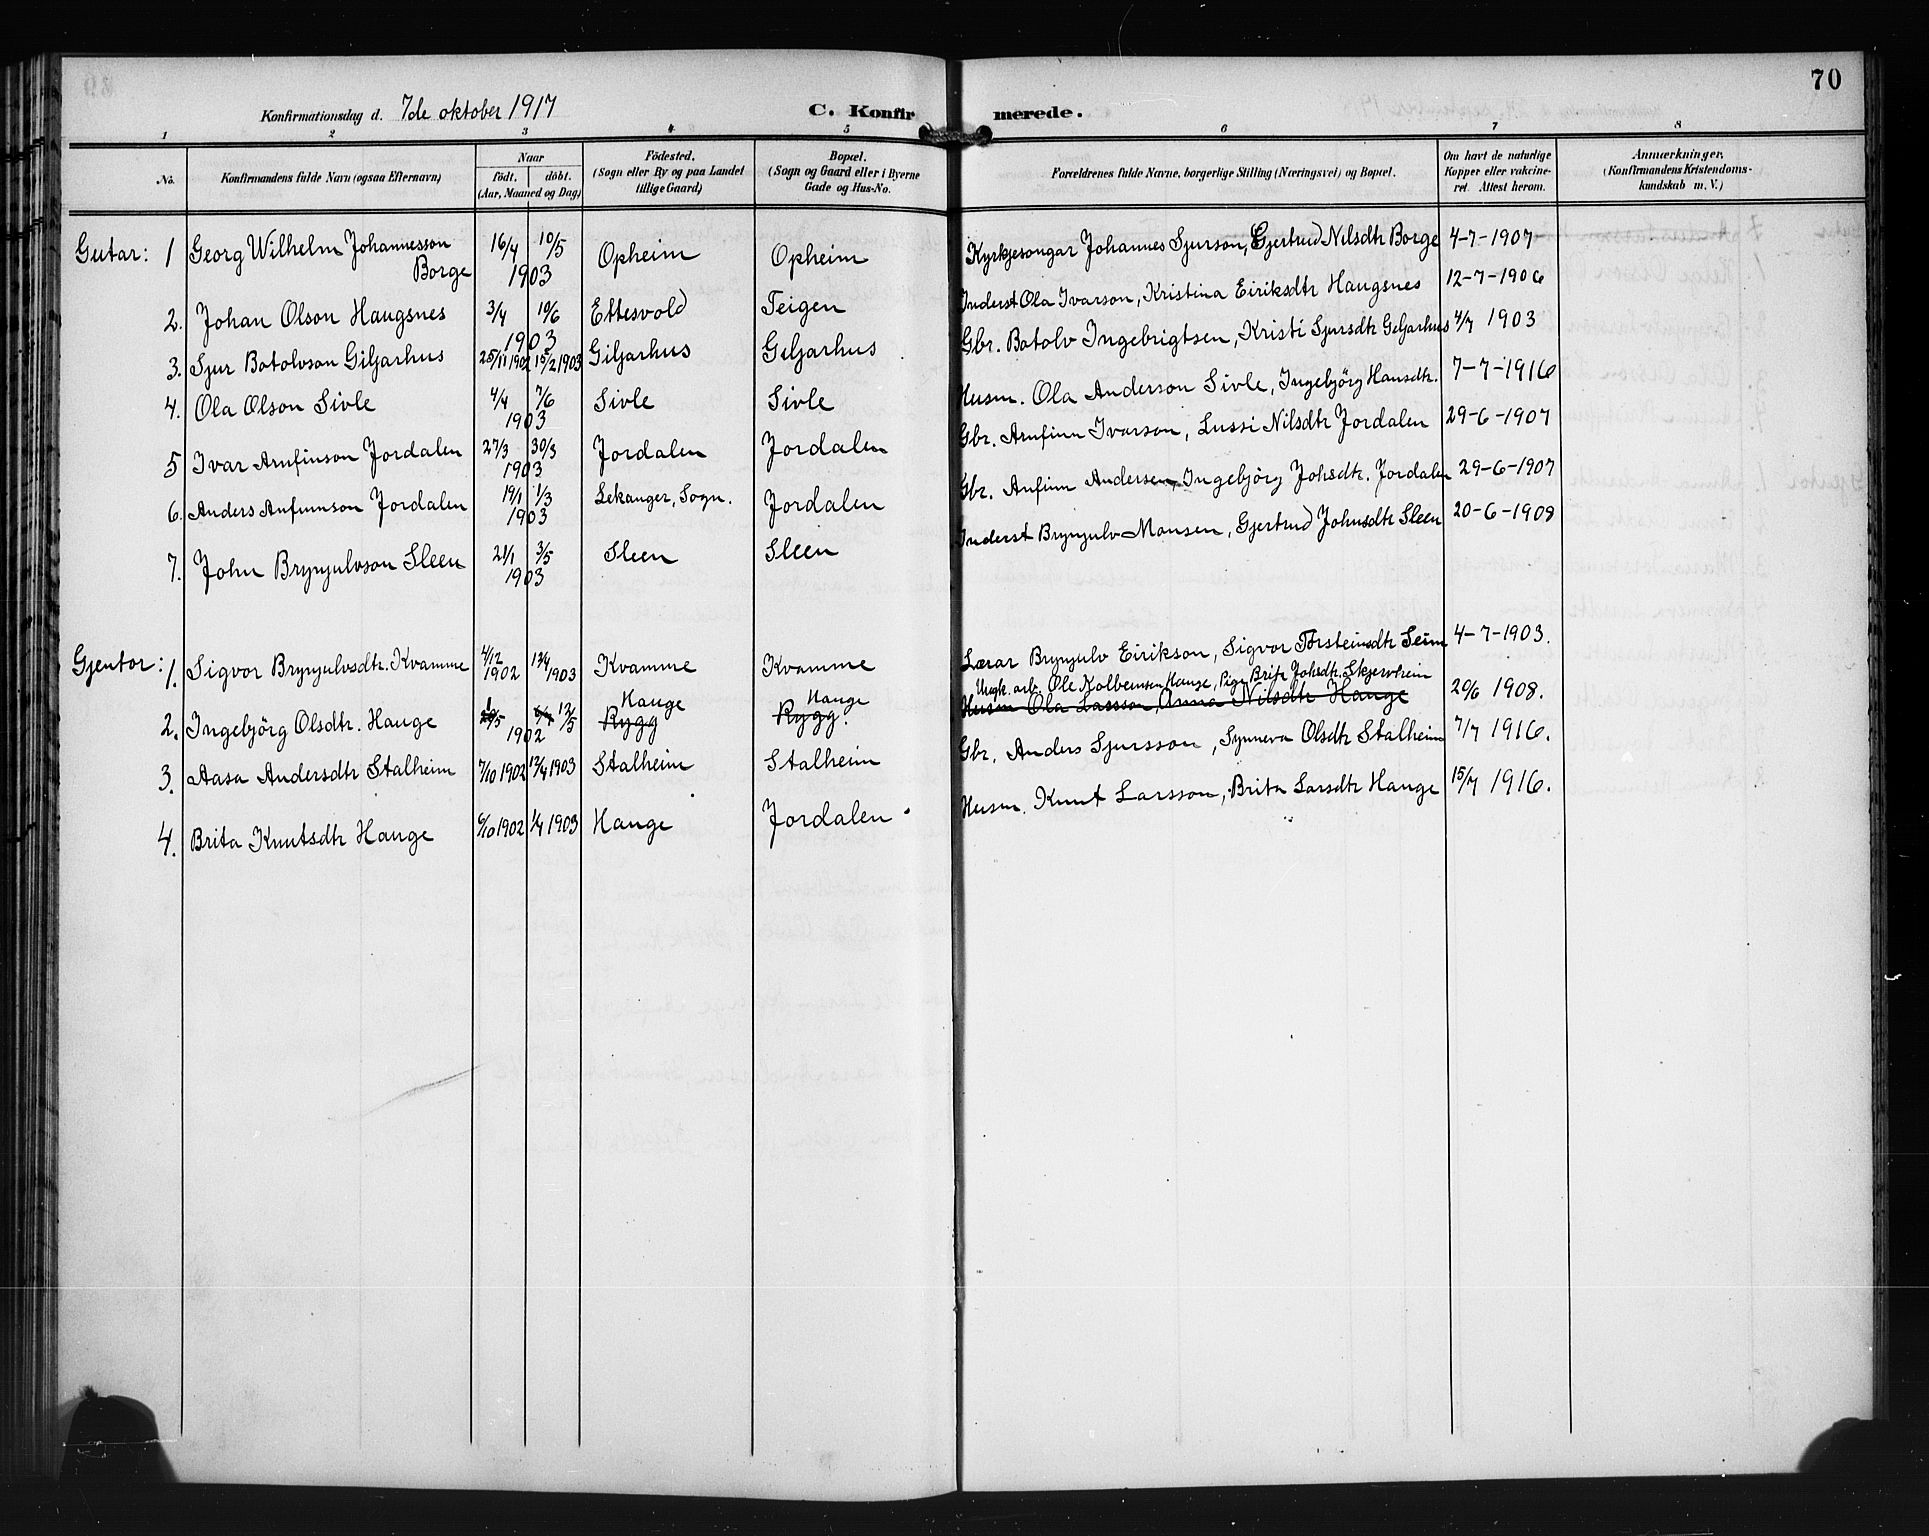 70
Konfirmationsdag d. 7de oktober 1917
C. Konfirmerede.
1 2 3 4 5 6 7 8
No.
Konfirmandens fulde Navn (ogsaa Efternavn)
Naar
födt. döbt.
(Aar, Maaned og Dag)
Födested.
(Sogn eller By og paa Landet
tillige Gaard)
Bopæl.
(Sogn og Gaard eller i Byerne
Gade og Hus-No.
Forældrenes fulde Navne, borgerlige Stilling (Næringsvei) og Bopæl.
Om havt de naturlige
Kopper eller vakcine-
ret. Attest herom.
Anmærkninger.
(Konfirmandens Kristendoms-
kundskab m. V.)
Gutar: 1 Georg Wilhelm Johannesson Borge 16/4 10/5 1903 Opheim Opheim Kyrkjesongar Johannes Sjurson, Gjertrud Nilsdtr Borge 4-7-1907
2. Johan Olson Haugsnes 3/4 10/6 1903 Ettesvold Teigen Inderst Ola Ivarson, Kristina Eiriksdtr Haugsnes 12-7-1906
3. Sjur Botolvson Giljarhus 25/11 1902 15/2 1903 Giljarhus Giljarhus Gbr. Botolv Ingebrigtsen, Kristi Sjursdtr Giljarhus 4/7 1903
4. Ola Olson Sivle 4/4 7/6 1903 Sivle Sivle Husm. Ola Anderson Sivle, Ingebjörg Hansdtr. 7-7-1916
5 Ivar Arnfinson Jordalen 27/3 30/3 1903 Jordalen Jordalen Gbr. Arnfinn Ivarson, Lussi Nilsdtr Jordalen 29-6-1907
6. Anders Anfinnson Jordalen 19/1 1/3 1903 Lekanger, Sogn. Jordalen Gbr. Anfinn Andersen, Ingebjörg Johsdtr. Jordalen 29-6-1907
7. John Brynjulvson Sleen 21/1 3/5 1903 Sleen Sleen Inderst Brynjulv Monsen, Gjertrud Johnsdtr Sleen 20-6-1908
Gjentor: 1. Sigvor Brynjulvsdtr. Kvamme 4/12 1902 13/4 1903 Kvamme Kvamme Lærar Brynjulv Eirikson, Sigvor Torsteinsdtr Seim 4-7-1903.
Ungk. arb. Ole Kolbeinsen Hauge, Pige Brita Johsdtr. Skjerveheim
2. Ingebjörg Olsdtr. Hauge 1902 Hauge Rygg Hauge Rygg. Husm Ola Larsson, Anna Nilsdtr Hauge 20/6 1908.
3. Aasa Andersdtr Stalheim 7/10 1902 13/4 1903 Stalheim Stalheim Gbr. Anders Sjursson, Synneva Olsdtr Stalheim 7/7 1916.
4. Brita Knutsdtr Hauge 6/10 1902 1/4 1903 Hauge Jordalen Husm. Knut Larsson, Brita Larsdtr Hauge 15/7 1916.